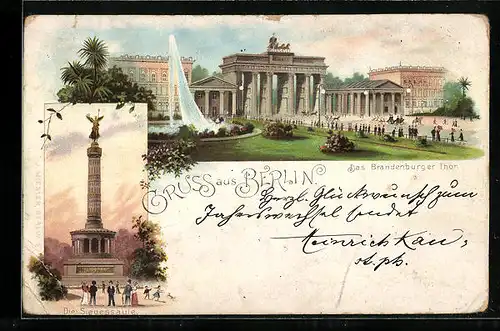 Das Brandenburger Thor.
GRUSS aus BERLIN
Herzl. Glückwunsch zum
Jahreswechsel sendet
Heinrich Kau,
st. ph.
Die Siegessäule.